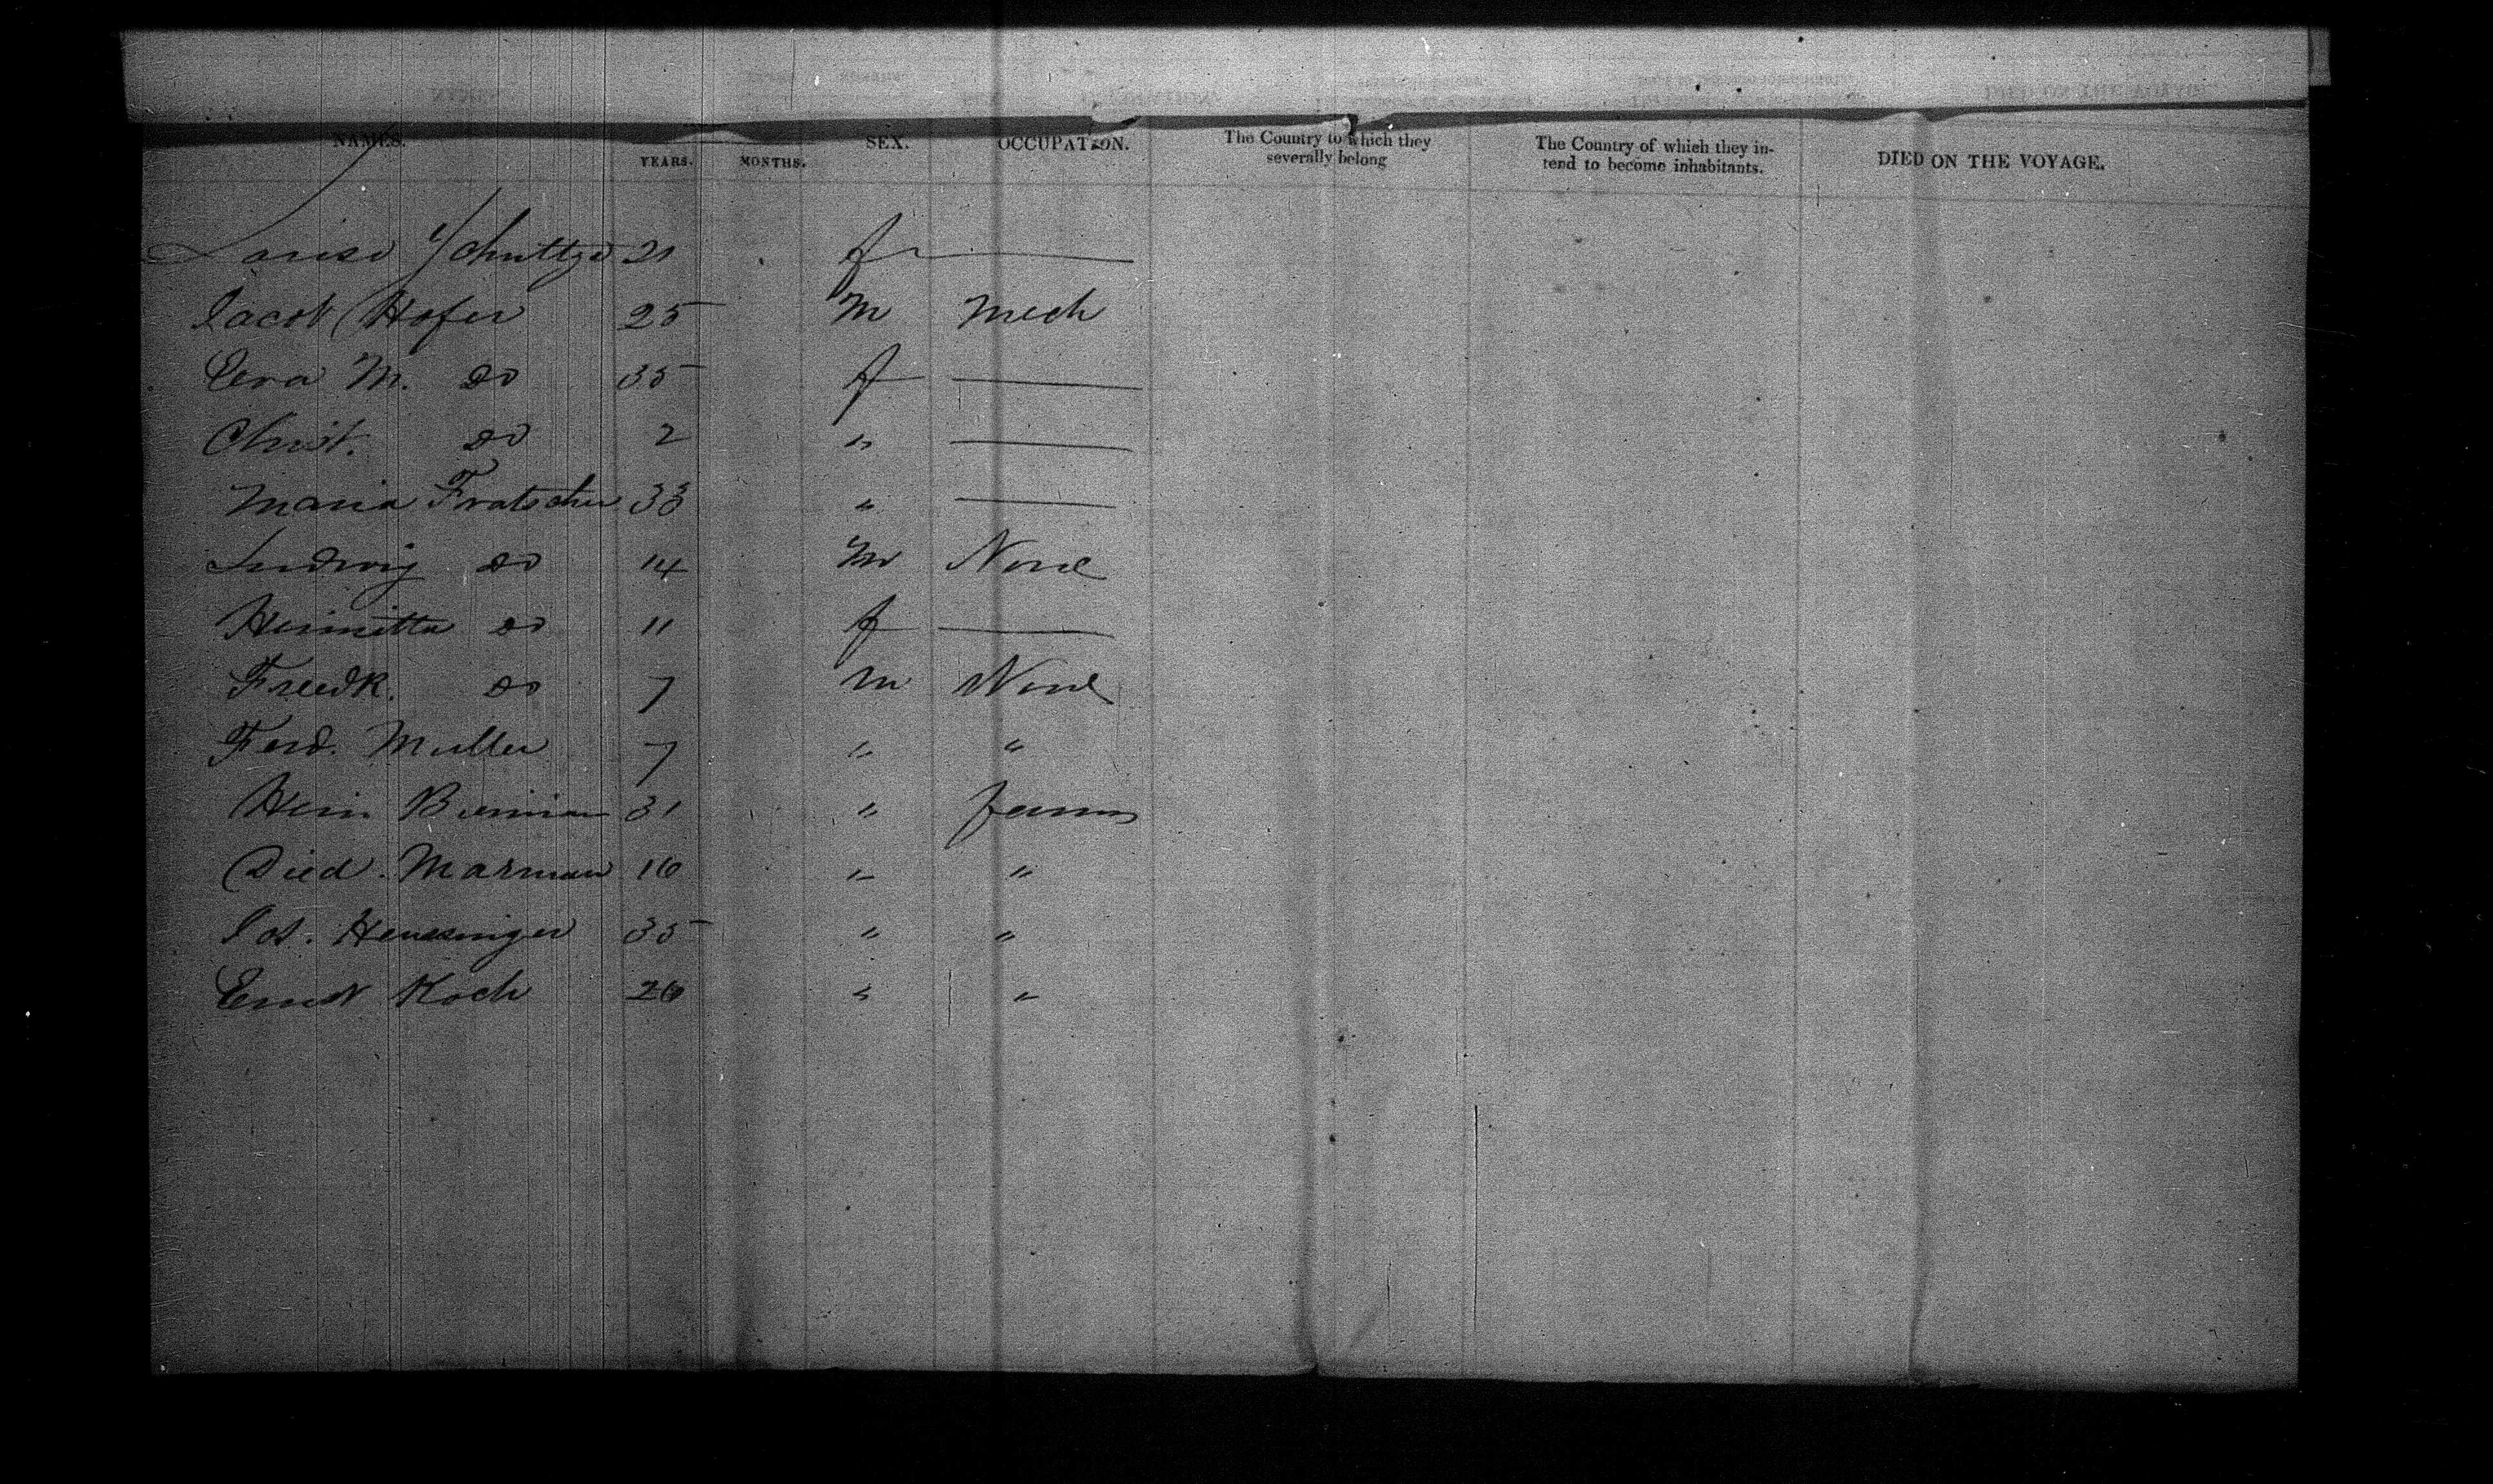 NAMES. YEARS. MONTHS. SEX. OCCUPATION. The Country to which they severally belong The Country of which they intend to become inhabitants. DIED ON THE VOYAGE.
Louise Schultze 21 f —
Jacob Hofer 25 m Mech
Eva M. do 35 f —
Christ. do 2 " —
Maria Fratscher 33 " —
Ludwig do 14 m None
Henrietta do 11 f —
Freedk. do 7 m None
Ferd. Muller 7 " "
Hein 31 " farmer
Died. Marman 16 " "
Jos. 35 " "
Ernst Koch 26 " "